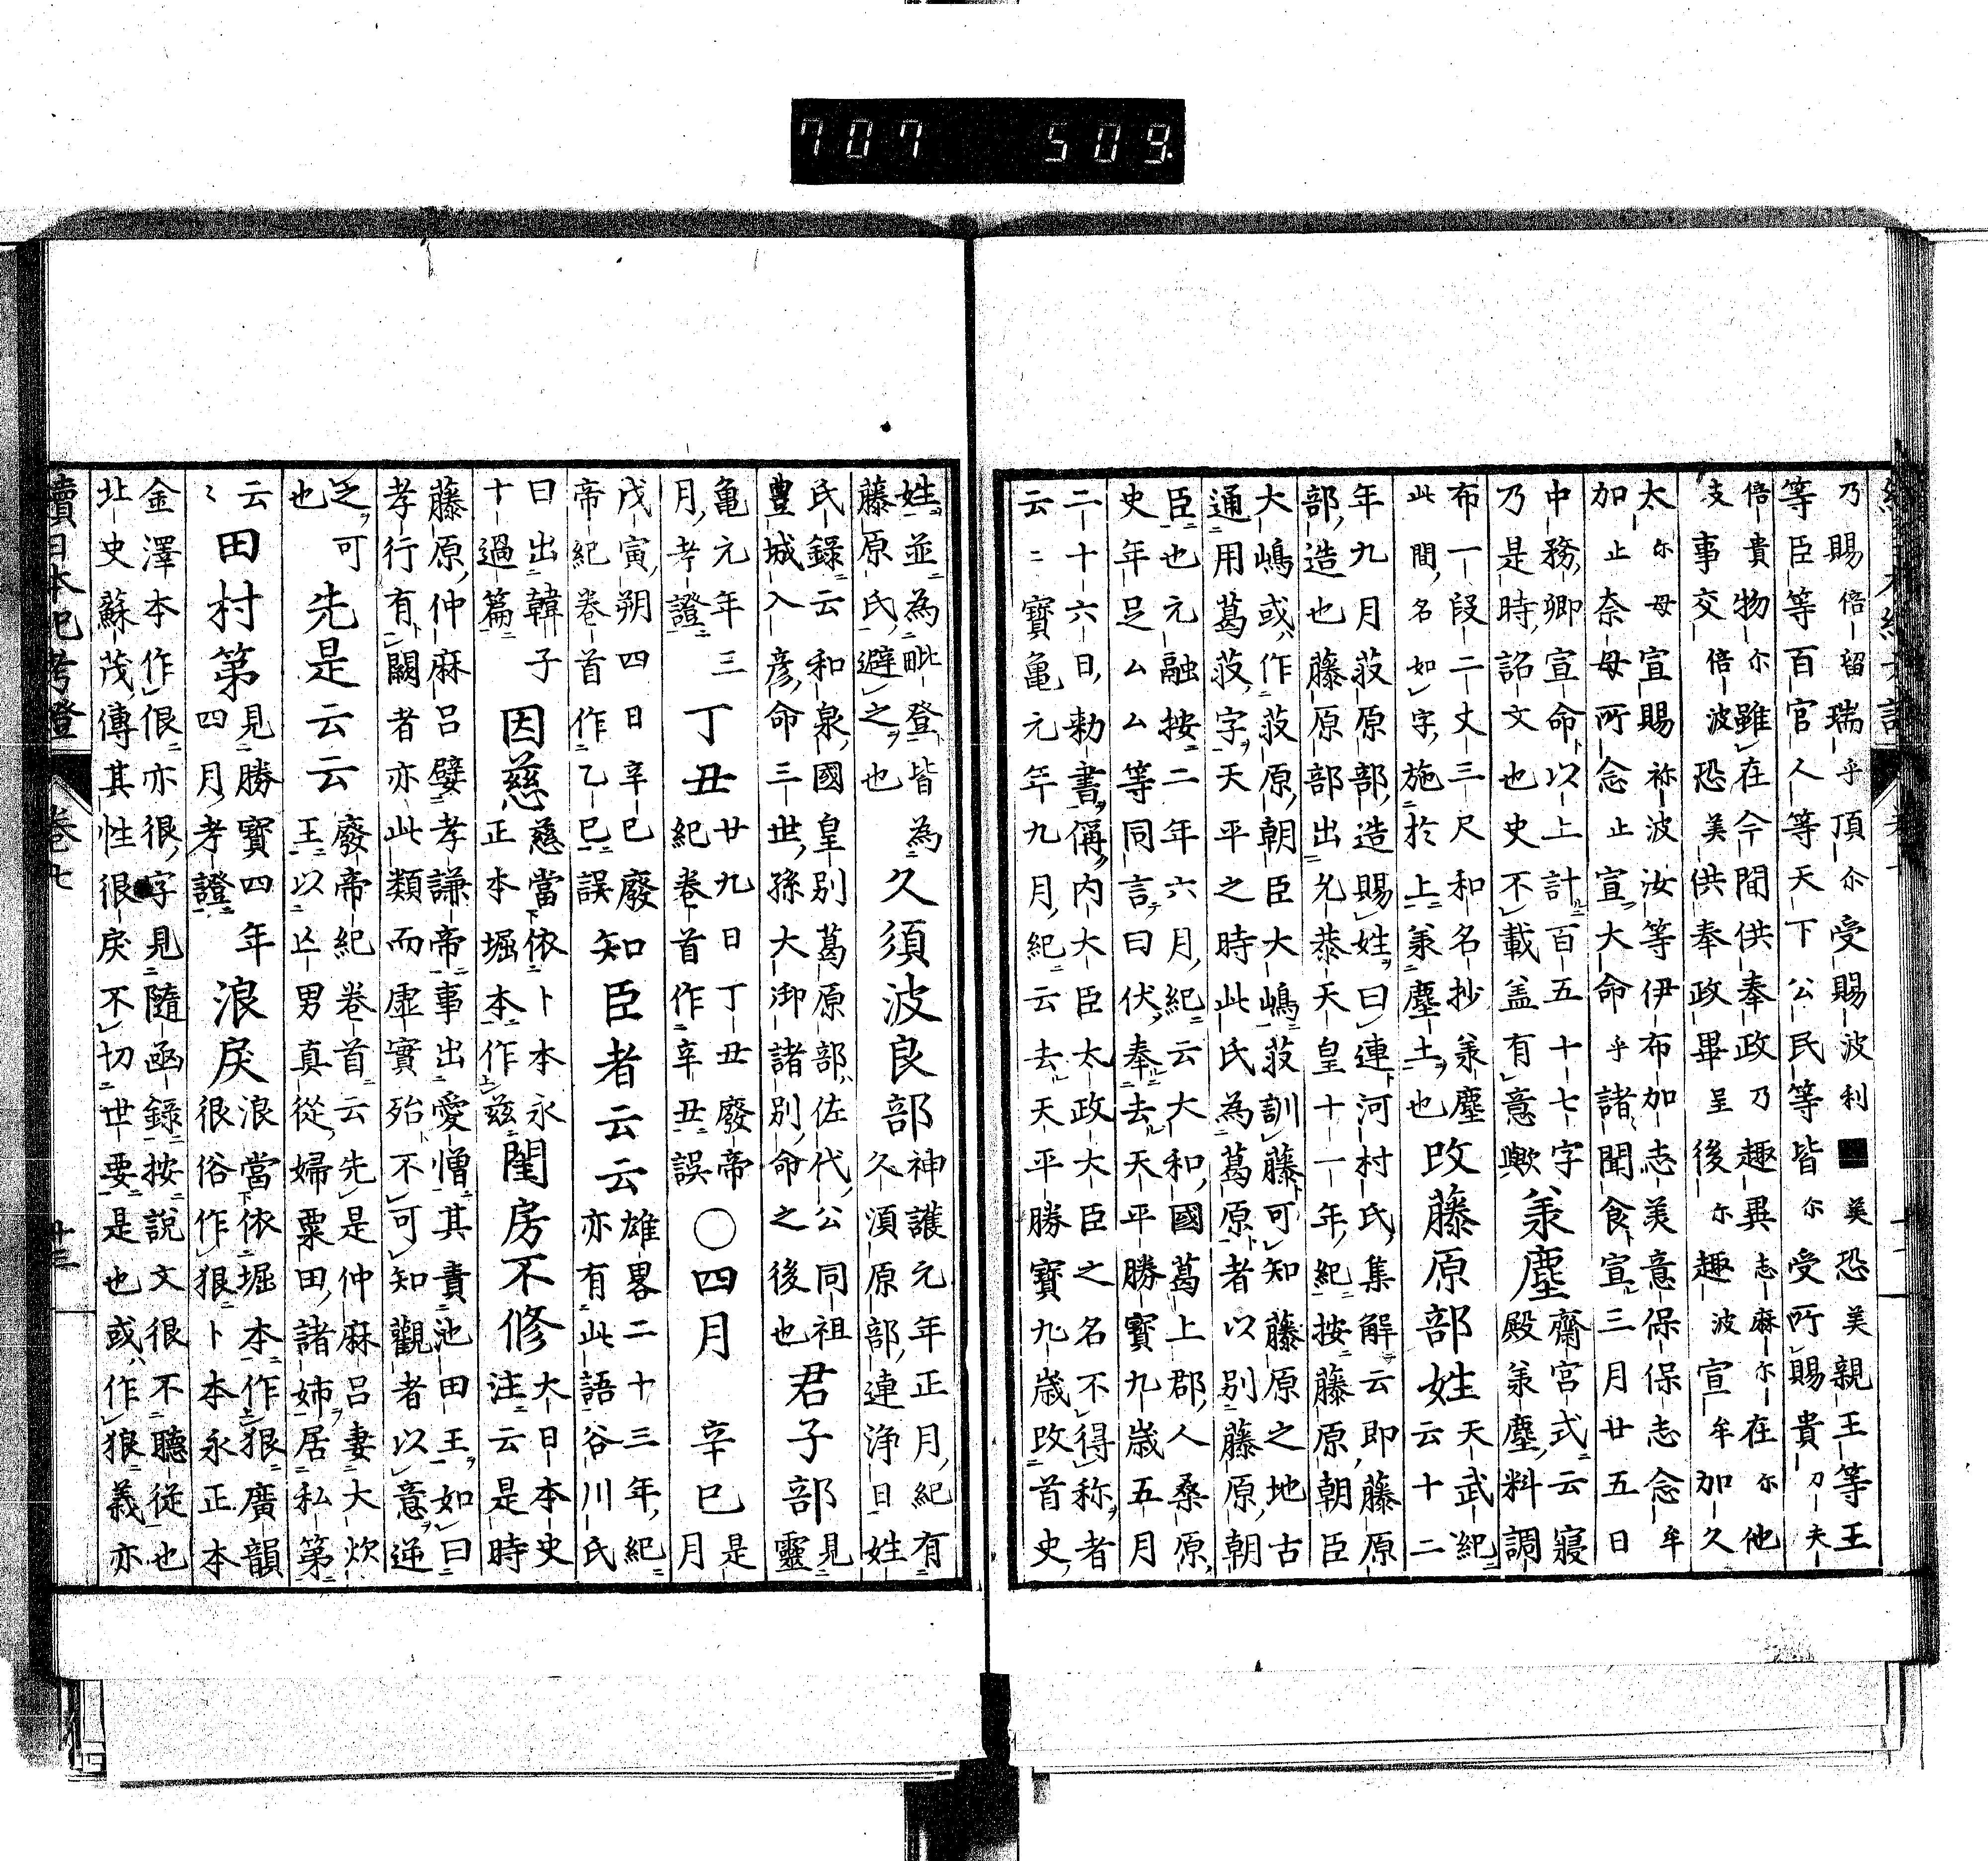 707 509.
乃賜倍留瑞乎頂尓受賜波利■美恐美親王等王
等臣等百官人等天下公民等皆尓受所賜貴刀夫
倍貴物尓雖在今間供奉政乃趣異志麻尓在尓他
支事交倍波恐美供奉政畢呈後尓趣波宣牟加久
太尓母宣賜祢波汝等伊布加志美意保保志念牟
加止奈母所念止宣大命乎諸聞食宣三月廿五日
中務卿宣命以上計百五十七字
乃是時詔文也史不載盖有意歟
羕塵
齋宮式云寢
殿羕塵料調
布一段二丈三尺和名抄羕塵
此間名如字施於上羕塵土也
改藤原部姓
天武紀
云十二
年九月莪原部造賜姓曰連河村氏集解云即藤原
部造也藤原部出允恭天皇十一年紀按藤原朝臣
大嶋或作莪原朝臣大嶋莪訓藤可知藤原之地古
通用葛莪字天平之時此氏為葛原者以別藤原朝
臣也元融按二年六月紀云大和國葛上郡人桑原
史年足厶厶等同言曰伏奉去天平勝寶九歳五月
二十六日勅書偁内大臣太政大臣之名不得称者
云ニ寶亀元年九月紀云去天平勝寶九歳改首史
姓並為毗登皆為
藤原氏避之也
久須波良部
神護元年正月紀有
久須原部連浄日姓
氏錄云和泉國皇別葛原部佐代公同祖
豊城入彦命三世孫大御諸別命之後也
君子部
見
靈
亀元年三
月考證
丁丑
廿九日丁丑廢帝
紀卷首作辛丑誤
○四月
辛巳
是
月
戊寅朔四日辛巳廢
帝紀卷首作乙巳誤
知臣者云云
雄畧二十三年紀
亦有此語谷川氏
曰出韓子
十過篇
因慈
慈當依卜本永
正本堀本作茲
閨房不修
大日本史
注云是時
藤原仲麻呂嬖孝謙帝事出愛憎其責池田王如曰
孝行有闕者亦此類而虛實殆不可知觀者以意逆
之可
也
先是云云
廢帝紀卷首云先是仲麻呂妻大炊
王以亾男真從婦粟田諸姉居私第
云
〻
田村第
見勝寶四年
四月考證
浪戾
浪當依堀本作狠廣韻
很俗作狠卜本永正本
金澤本作佷亦很字見隨函錄按說文很不聽從也
北史蘇茂傳其性很戾不切世要是也或作狼義亦
續日本紀考證
卷七
十二